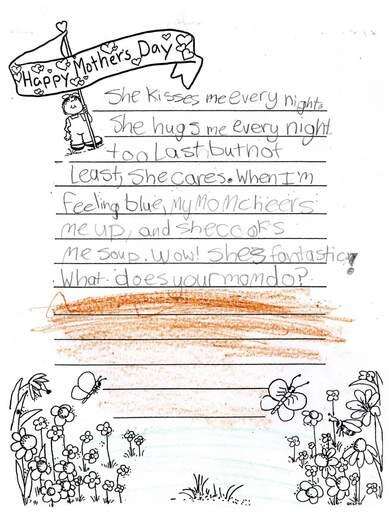 Happy Mother's Day
She kisses me every night.
She hugs me every night
too. Last, but not
Least, She cares. When I'm
feeling blue, My MoM cheers
me up, and she cooks
me soup. Wow! She's fantastic!
What does your mom do?